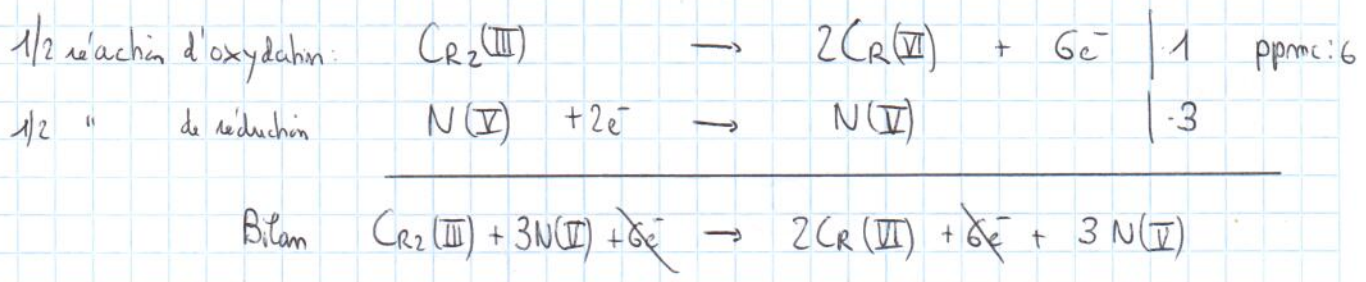 1/2 réaction d'oxydation: CR2(III) → 2CR(VI) + 6e⁻ | ·1 ppmc: 6
1/2 " de réduction N(V) + 2e⁻ → N(V) | ·3
Bilan CR2(III) + 3N(V) + 6e⁻ → 2CR(VI) + 6e⁻ + 3N(V)